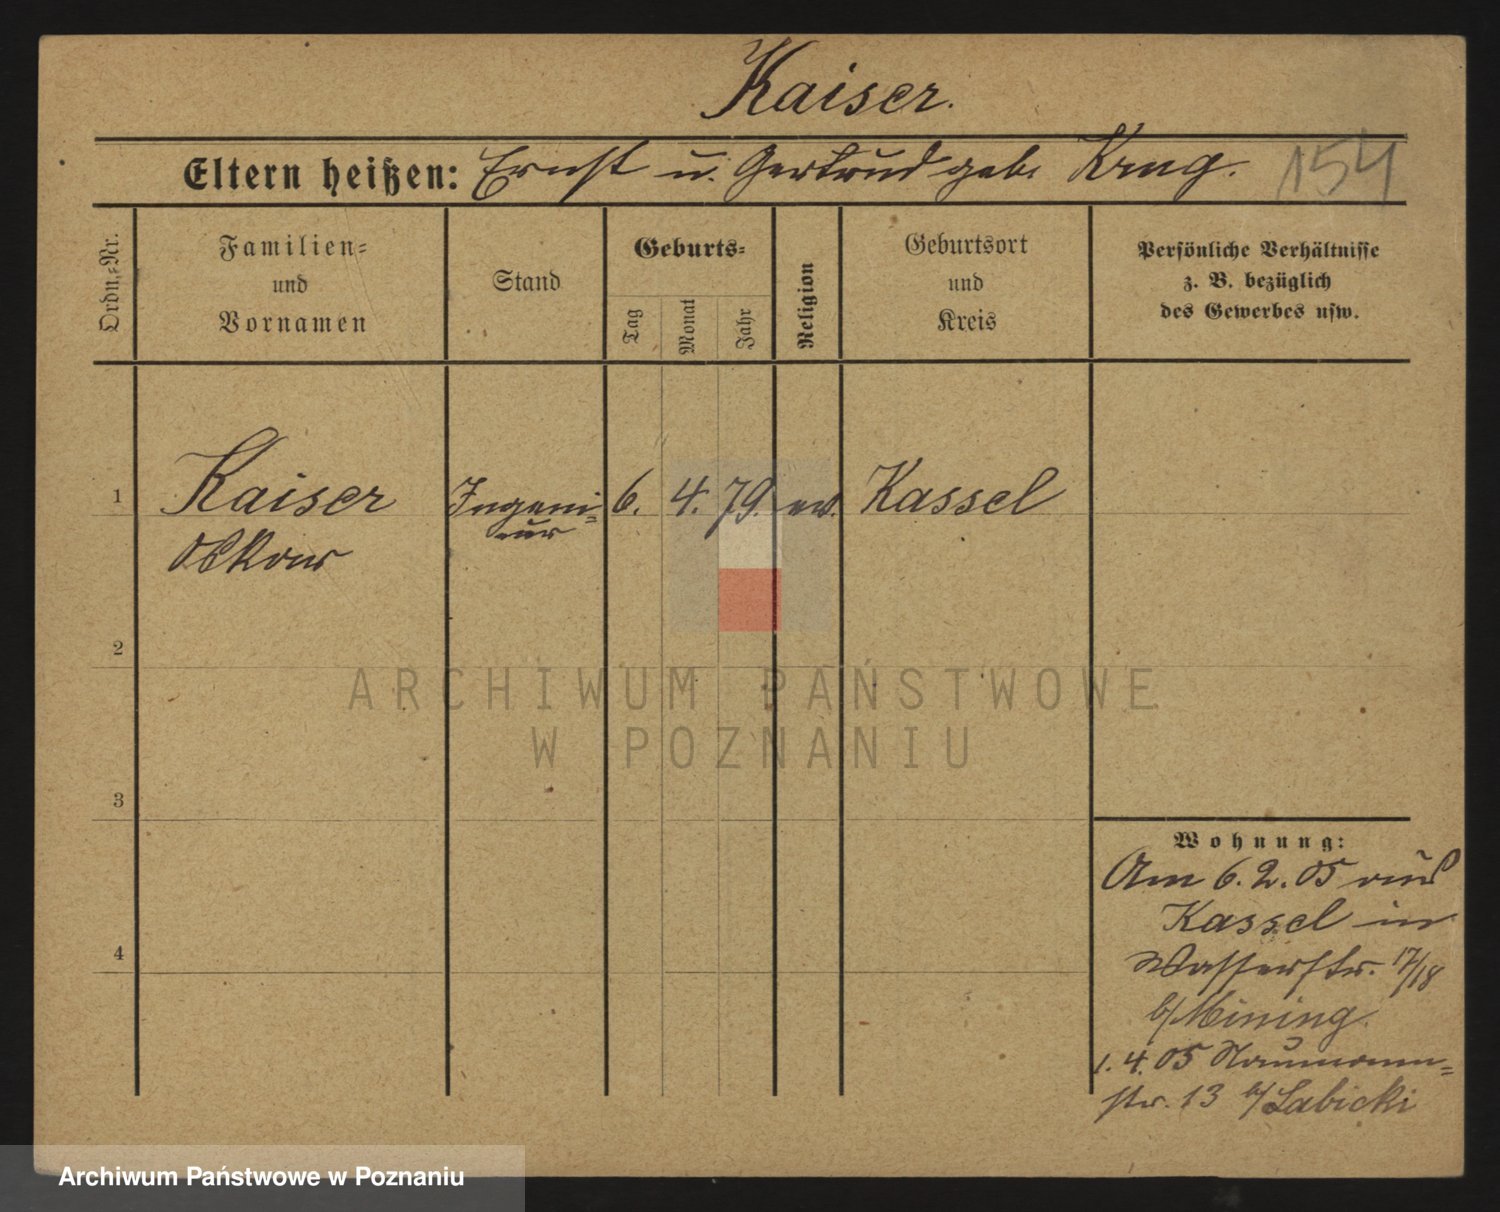 Kaiser.
Eltern heißen: Ernst u. Gertrud geb. Krug. 154
Ordn.-Nr.
Familien-
und
Vornamen
Stand
Geburts-
Tag
Monat
Jahr
Religion
Geburtsort
und
Kreis
Persönliche Verhältnisse
z. B. bezüglich
des Gewerbes usw.
1 Kaiser Ingeni= 6. 4. 79. ev. Kassel
eur
Oskar
2
3
4
Wohnung:
Am 6. 2. 05 aus
Kassel in
Wasserstr. 17/18
b/ Mining.
1. 4. 05 Naumann=
str. 13 b/ Labicki
ARCHIWUM PAŃSTWOWE
W POZNANIU
Archiwum Państwowe w Poznaniu